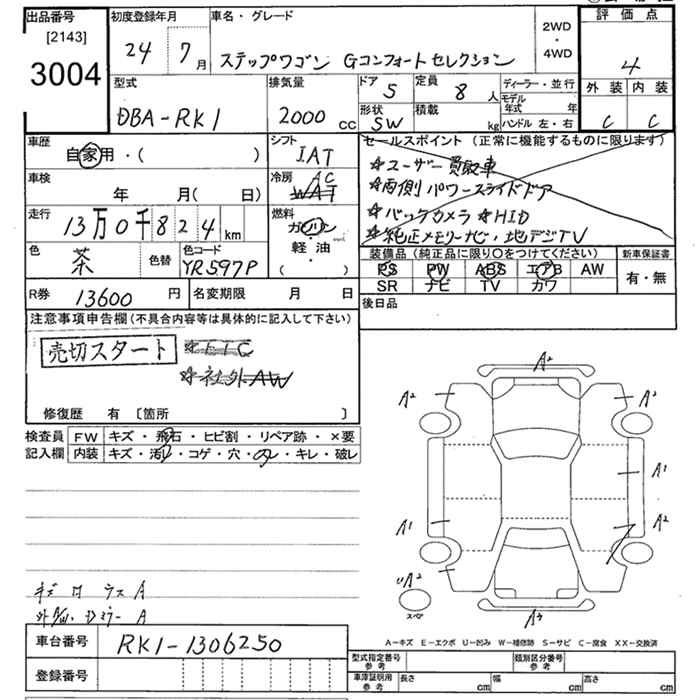 出品番号
[2143]
3004
初度登録年月
24 7月
車名・グレード
ステップワゴン Gコンフォートセレクション
2WD
・
4WD
評価点
4
外装 内装
C C
型式
DBA-RK1
排気量
2000 cc
ドア 5
定員 8 人
形状 SW
積載 kg
ディーラー・並行
モデル年式 年
ハンドル 左・右
車歴
自家用・( )
シフト
IAT
セールスポイント (正常に機能するものに限ります)
☆ユーザー買取車
☆両側パワースライドドア
☆バックカメラ ☆HID
☆純正メモリーナビ・地デジTV
車検
年 月( 日)
冷房 AC
WAT
走行
13万0千824 km
燃料
ガソリン
軽・油
( )
色
茶
色替
色コード
YR597P
装備品 (純正品に限り○をつけてください)
PS PW ABS エアB AW
SR ナビ TV カワ
新車保証書
有・無
R券 13600 円
名変期限 月 日
後日品
注意事項申告欄(不具合内容等は具体的に記入して下さい)
売切スタート
☆ETC
☆社外AW
修復歴 有 〔箇所 〕
検査員
記入欄
FW キズ・飛石・ヒビ割・リペア跡・×要
内装 キズ・汚レ・コゲ・穴・のり・キレ・破レ
A2
A2
A2
A1
A1
A2
UA2
スペア
A3
キズ ロ ウス A
車台番号 RK1-1306250
登録番号
A-キズ E-エクボ U-凹み W-補修跡 S-サビ C-腐食 XX-交換済
型式指定番号
参考
類別区分番号
参考
車庫証明用
参考
長さ cm 幅 cm 高さ cm